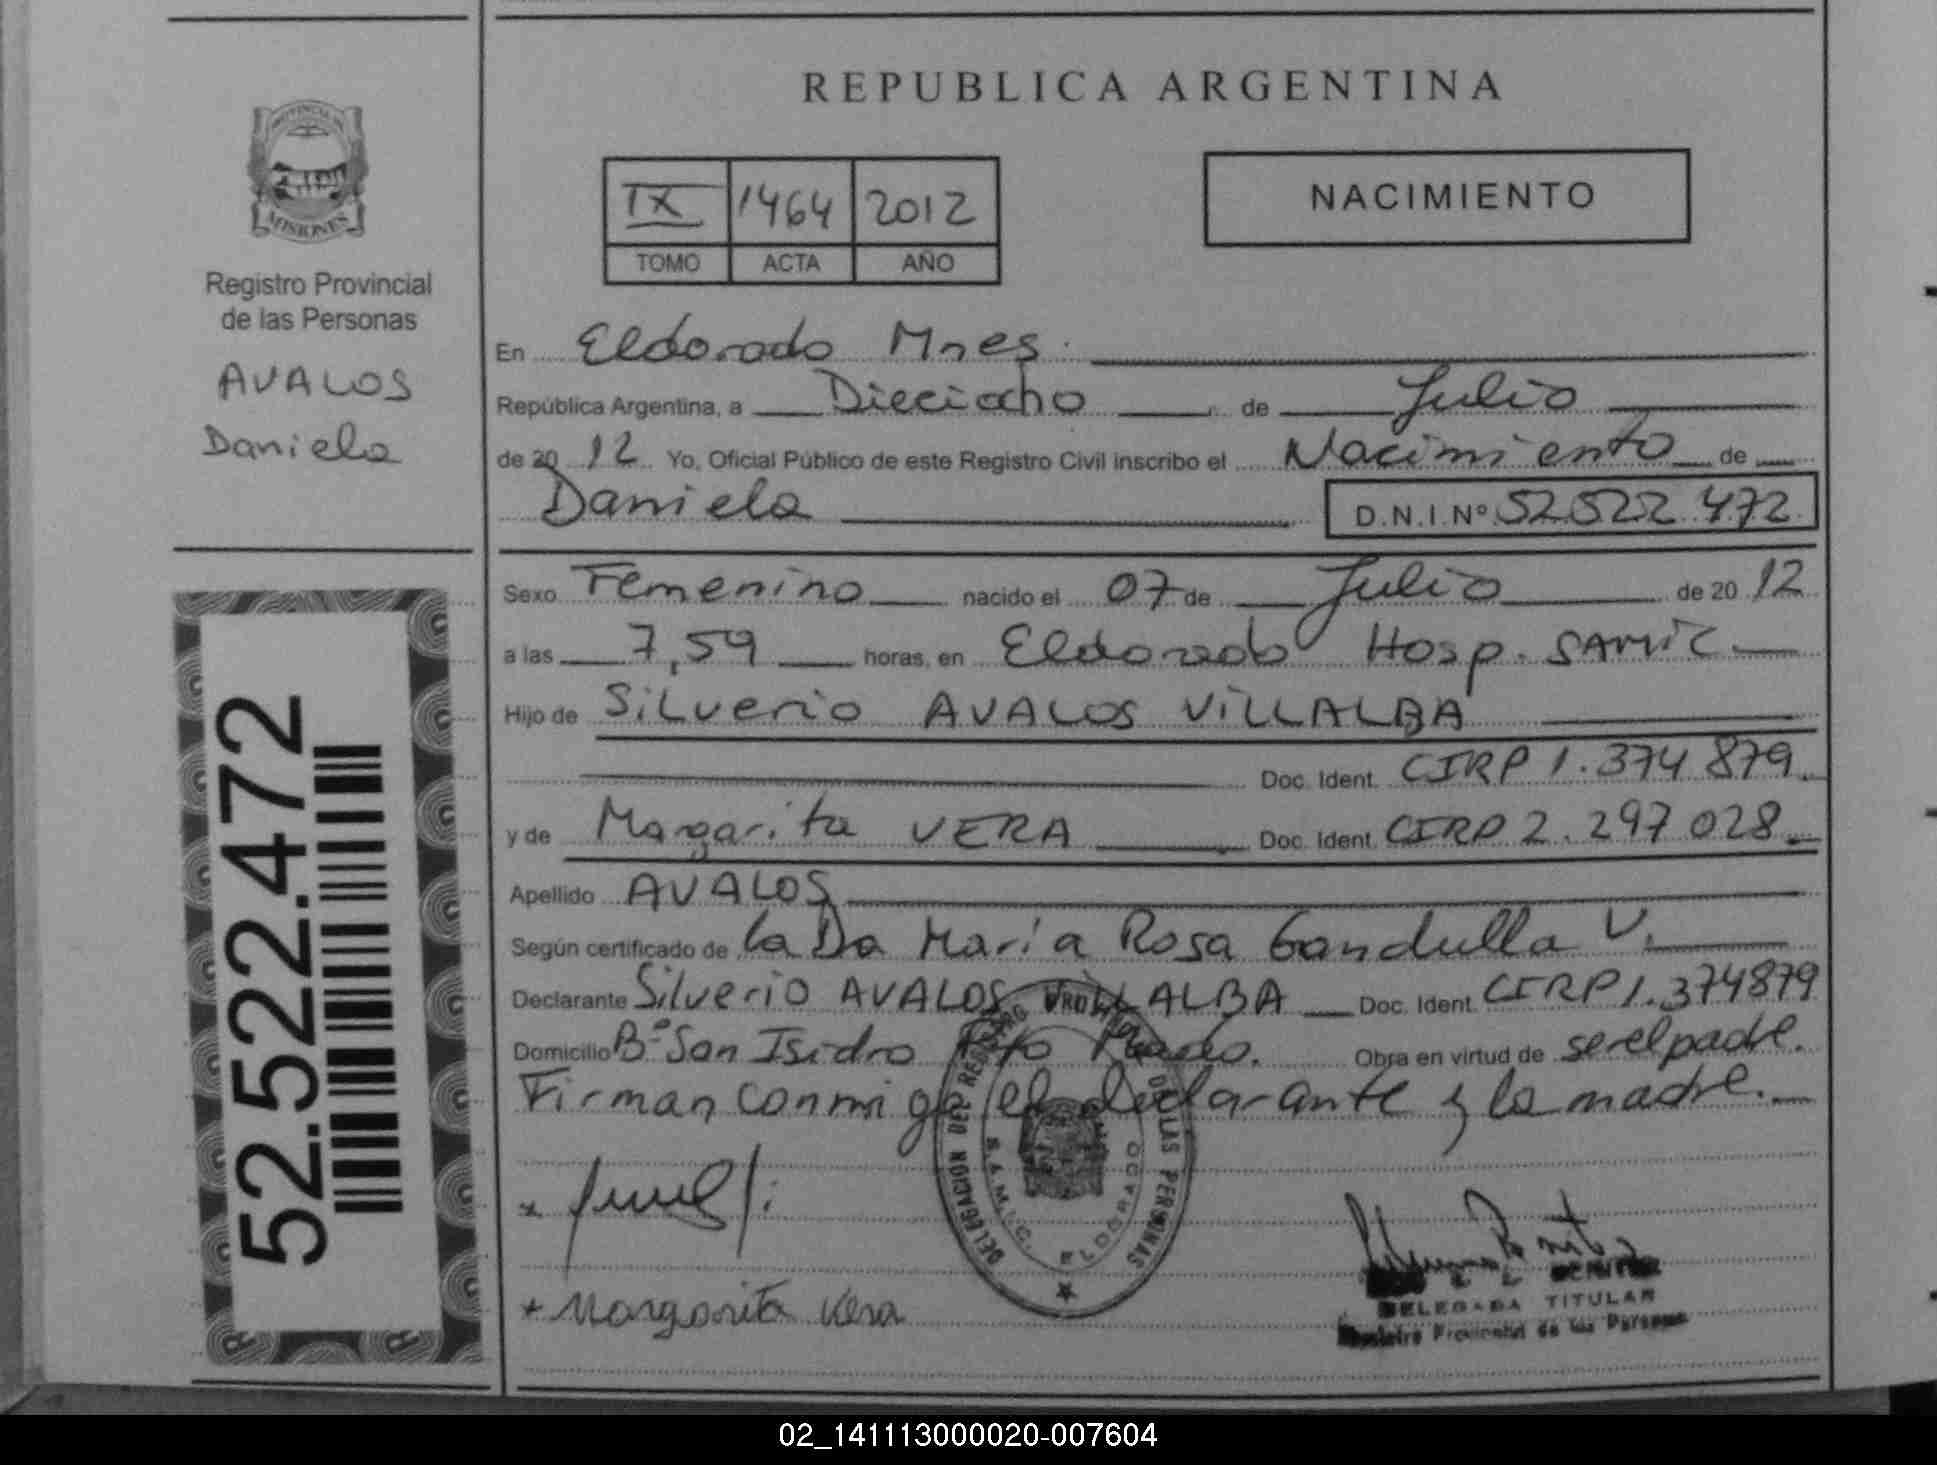 REPUBLICA ARGENTINA
PROVINCIA DE
MISIONES
Registro Provincial
de las Personas
AVALOS
Daniela
IX 1464 2012
TOMO ACTA AÑO
NACIMIENTO
En Eldorado Mnes.
República Argentina, a Dieciocho de Julio
de 2012 Yo, Oficial Público de este Registro Civil inscribo el Nacimiento de
Daniela D.N.I.Nº 52522 472
Sexo Femenino nacido el 07 de Julio de 20 12
a las 7,59 horas, en Eldorado Hosp. SAMIC
Hijo de Silverio AVALOS VILLALBA
Doc. Ident. CIRP 1.374 879
y de Margarita VERA Doc. Ident. CIRP 2.297 028
Apellido AVALOS
Según certificado de la Da Maria Rosa Gandulla V.
Declarante Silverio AVALOS VILLALBA Doc. Ident. CIRP 1.374879
Domicilio Bº San Isidro Pto Obra en virtud de ser el padre.
Firman conmigo el declarante y la madre.
Margarita Vera
DELEGACION DEL REGISTRO PROVINCIAL DE LAS PERSONAS
S.A.M.I.C. ELDORADO
DELEGADA TITULAR
Registro Provincial de las Personas
52.522.472
02_141113000020-007604